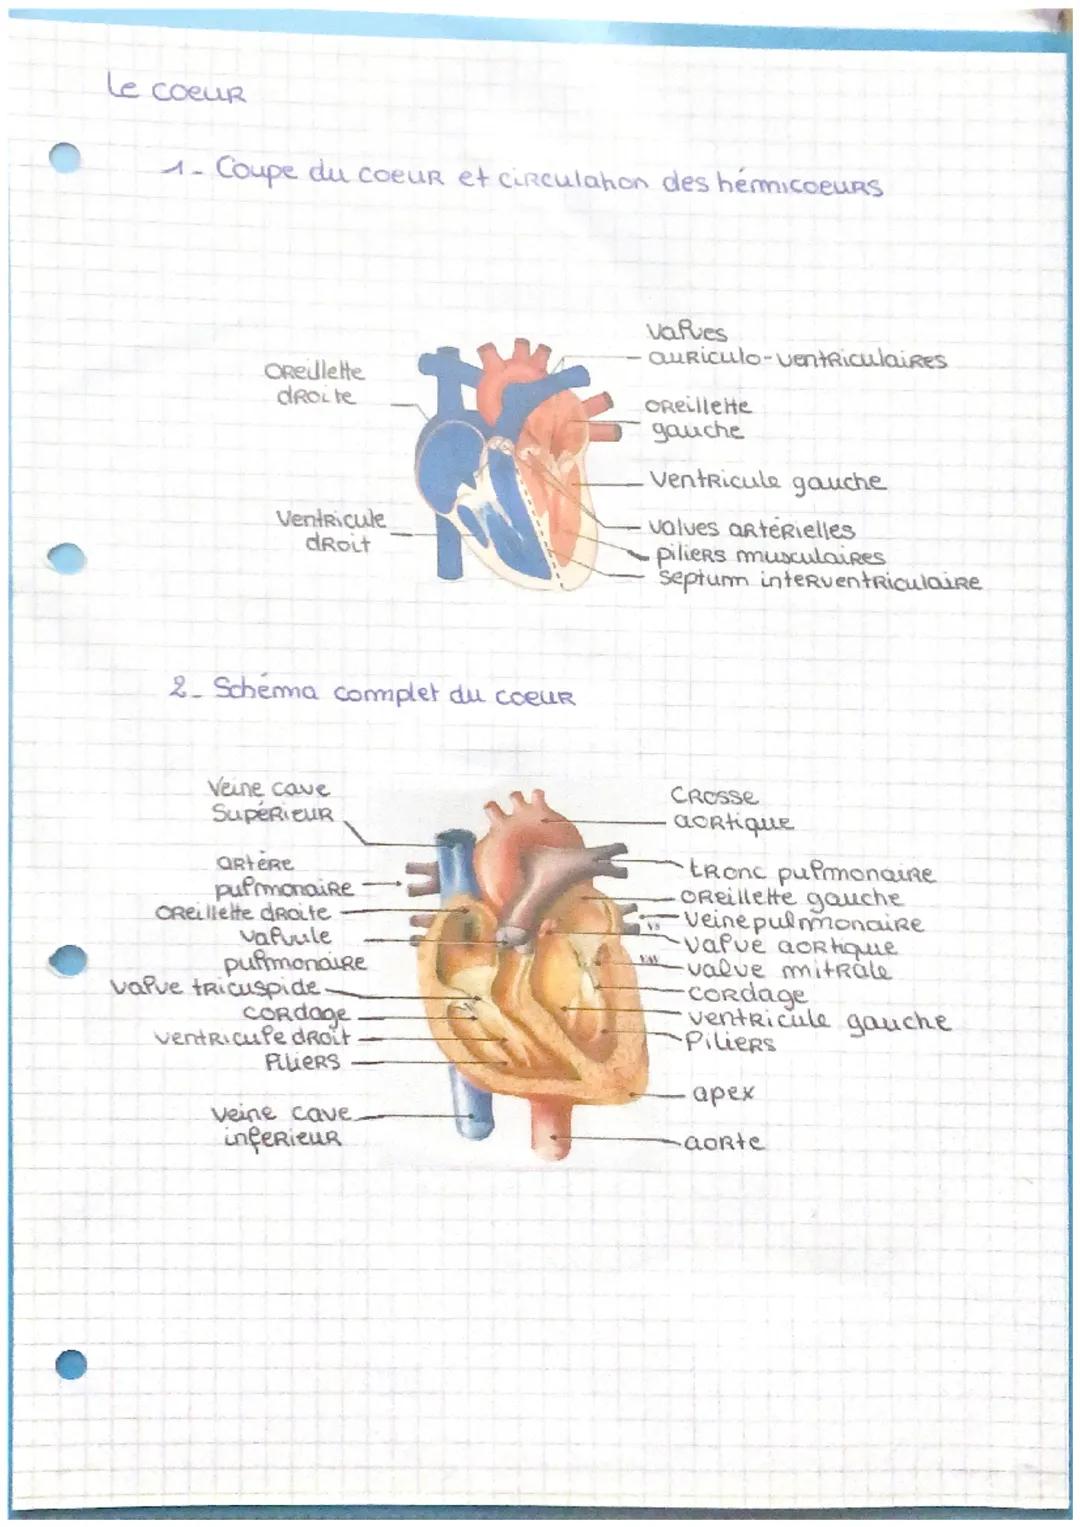 Le coeur
1- Coupe du coeur et circulation des hémicoeurs
Valves
auriculo-ventriculaires
Oreillette
droite
oreillette
gauche
Ventricule gauche
Ventricule
droit
valves artérielles
piliers musculaires
septum interventriculaire
2- Schéma complet du coeur
Veine cave
Supérieur
artère
pulmonaire
oreillette droite
valvule
pulmonaire
valve tricuspide
cordage
ventricule droit
Piliers
veine cave
inferieur
Crosse
aortique
tronc pulmonaire
oreillette gauche
Veine pulmonaire
valve aortique
valve mitrale
cordage
ventricule gauche
Piliers
apex
aorte